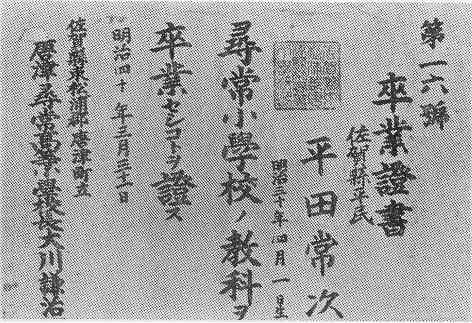 第一六號
卒業證書
佐賀縣平民
平田常次
明治三十年四月一日生
尋常小學校ノ教科ヲ
卒業セシコトヲ證ス
明治四十年三月三十一日
佐賀縣東松浦郡唐津町立
唐津尋常高等小學校長大川謙治